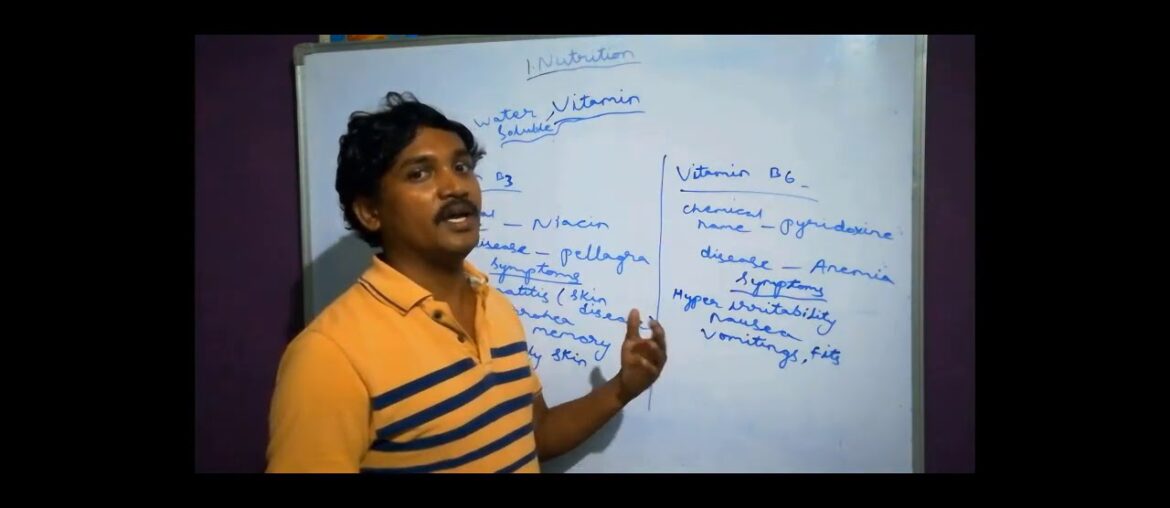 1. Nutrition
Water, Vitamin
Soluble
B3
– Niacin
disease – pellagra
Symptoms
(Skin
disease)
memory
skin
Vitamin B6
chemical
name – pyridoxine
disease – Anemia
Symptoms
Hyper irritability
Nausea
Vomitings, Fits